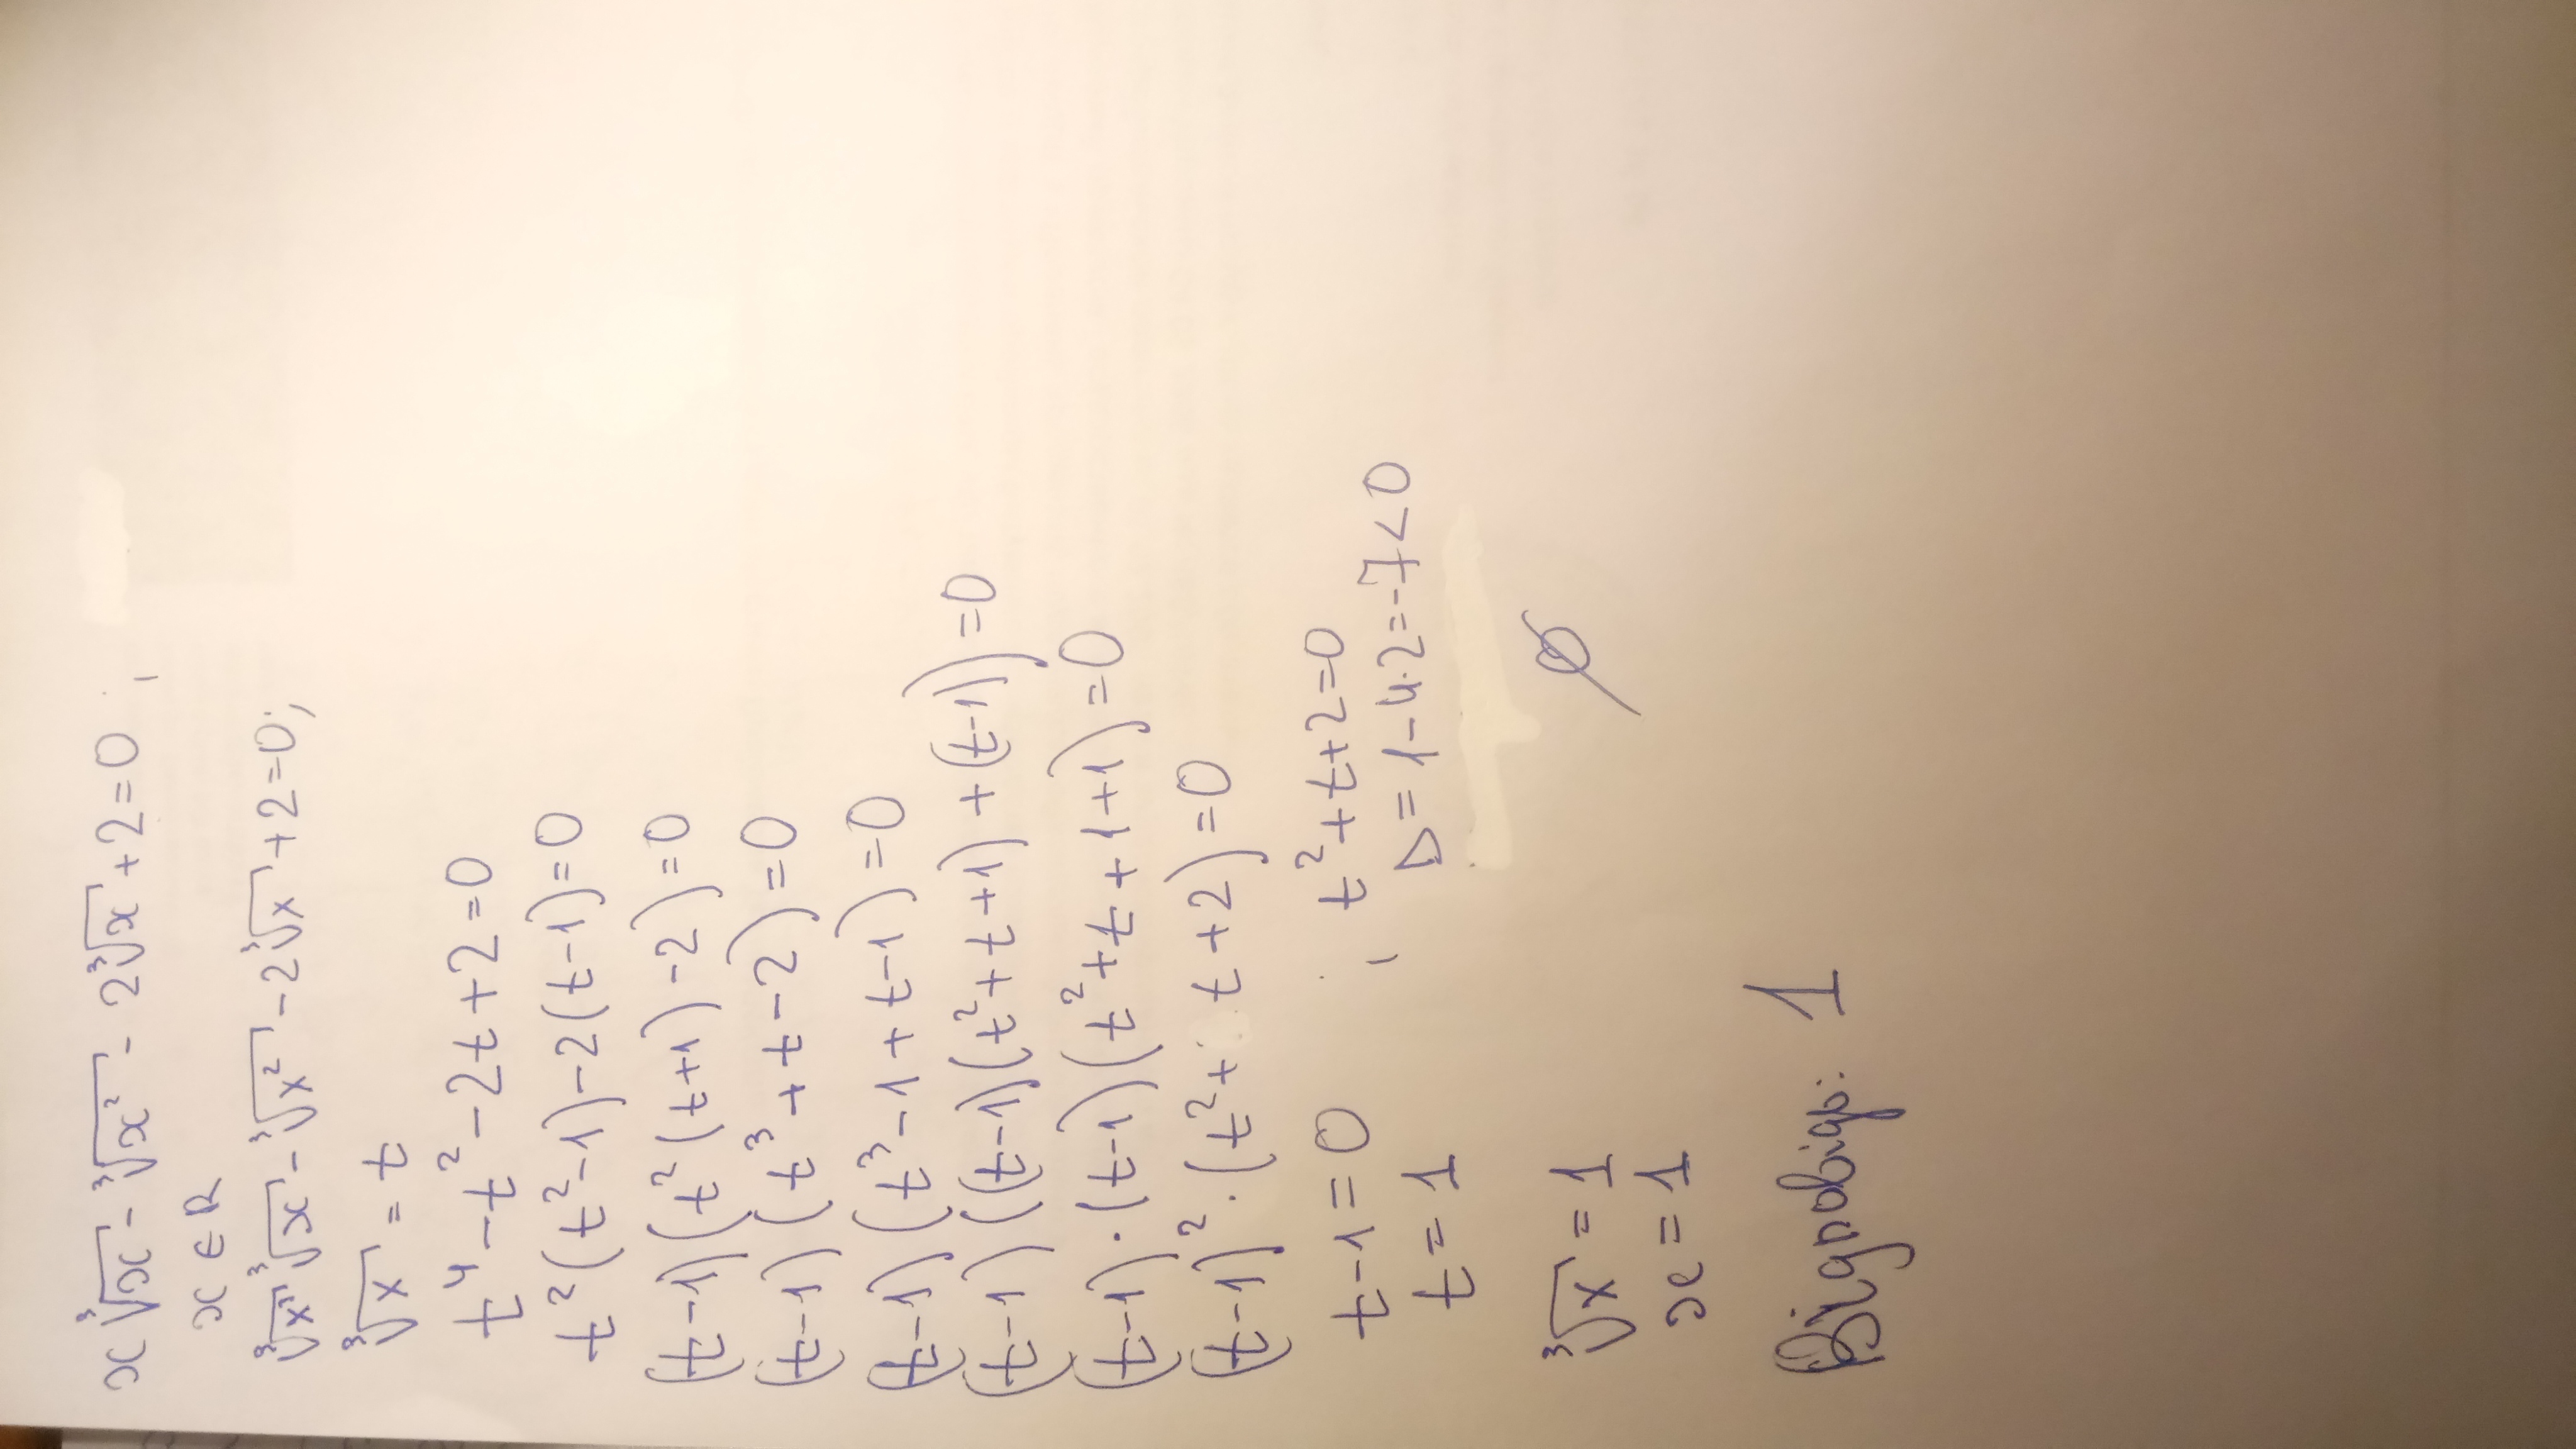 x∛x - ∛x² - 2∛x + 2 = 0;
x ∈ R
∛x³ ∛x - ∛x² - 2∛x + 2 = 0;
∛x = t
t⁴ - t² - 2t + 2 = 0
t²(t² - 1) - 2(t - 1) = 0
(t - 1)(t²(t + 1) - 2) = 0
(t - 1)(t³ + t - 2) = 0
(t - 1)(t³ - 1 + t - 1) = 0
(t - 1)((t - 1)(t² + t + 1) + (t - 1)) = 0
(t - 1)·(t - 1)(t² + t + 1 + 1) = 0
(t - 1)²·(t² + t + 2) = 0
t - 1 = 0 ; t² + t + 2 = 0
t = 1 D = 1 - 4·2 = -7 < 0
∛x = 1 ∅
x = 1
Відповідь: 1